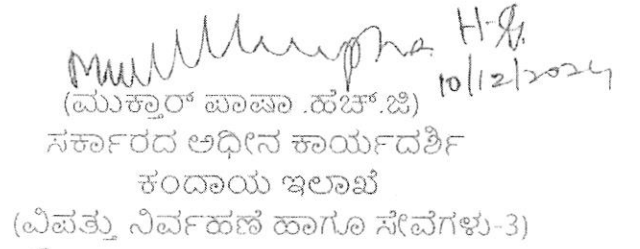 H.G.
10/12/2024
(ಮುಕ್ತಾರ್ ಪಾಷಾ .ಹೆಚ್.ಜಿ)
ಸರ್ಕಾರದ ಅಧೀನ ಕಾರ್ಯದರ್ಶಿ
ಕಂದಾಯ ಇಲಾಖೆ
(ವಿಪತ್ತು ನಿರ್ವಹಣೆ ಹಾಗೂ ಸೇವೆಗಳು-3)